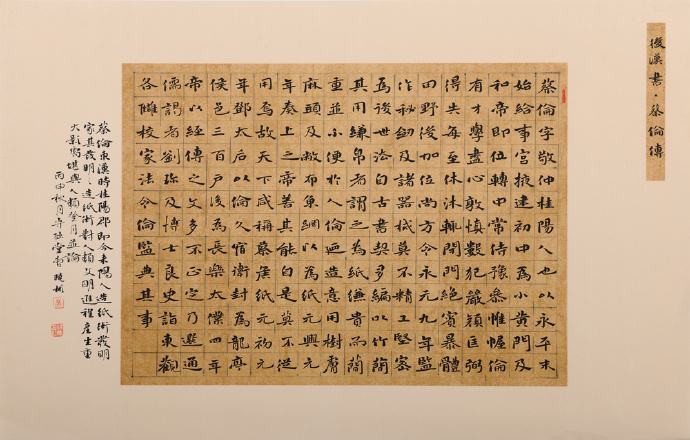 後漢書·蔡倫傳
蔡倫字敬仲桂陽人也以永平末
始給事宮掖建初中為小黃門及
和帝即位轉中常侍豫參帷幄倫
有才學盡心敦慎數犯嚴顏匡弼
得失每至休沐輒閉門絕賓暴體
田野後加位尚方令永元九年監
作秘劒及諸器械莫不精工堅密
為後世法自古書契多編以竹簡
其用縑帛者謂之為紙縑貴而簡
重並不便於人倫迺造意用樹膚
麻頭及敝布魚網以為紙元興元
年奏上之帝善其能自是莫不從
用焉故天下咸稱蔡侯紙元初元
年鄧太后以倫久宿衛封為龍亭
侯邑三百戶後為長樂太僕四年
帝以經傳之文多不正定乃選通
儒謁者劉珍及博士良史詣東觀
各讎校家法令倫監典其事
蔡倫東漢時桂陽郡即今耒陽人造紙術發明
家其發明之造紙術對人類文明進程產生重
大影響堪與人類登月並論
丙申秋月